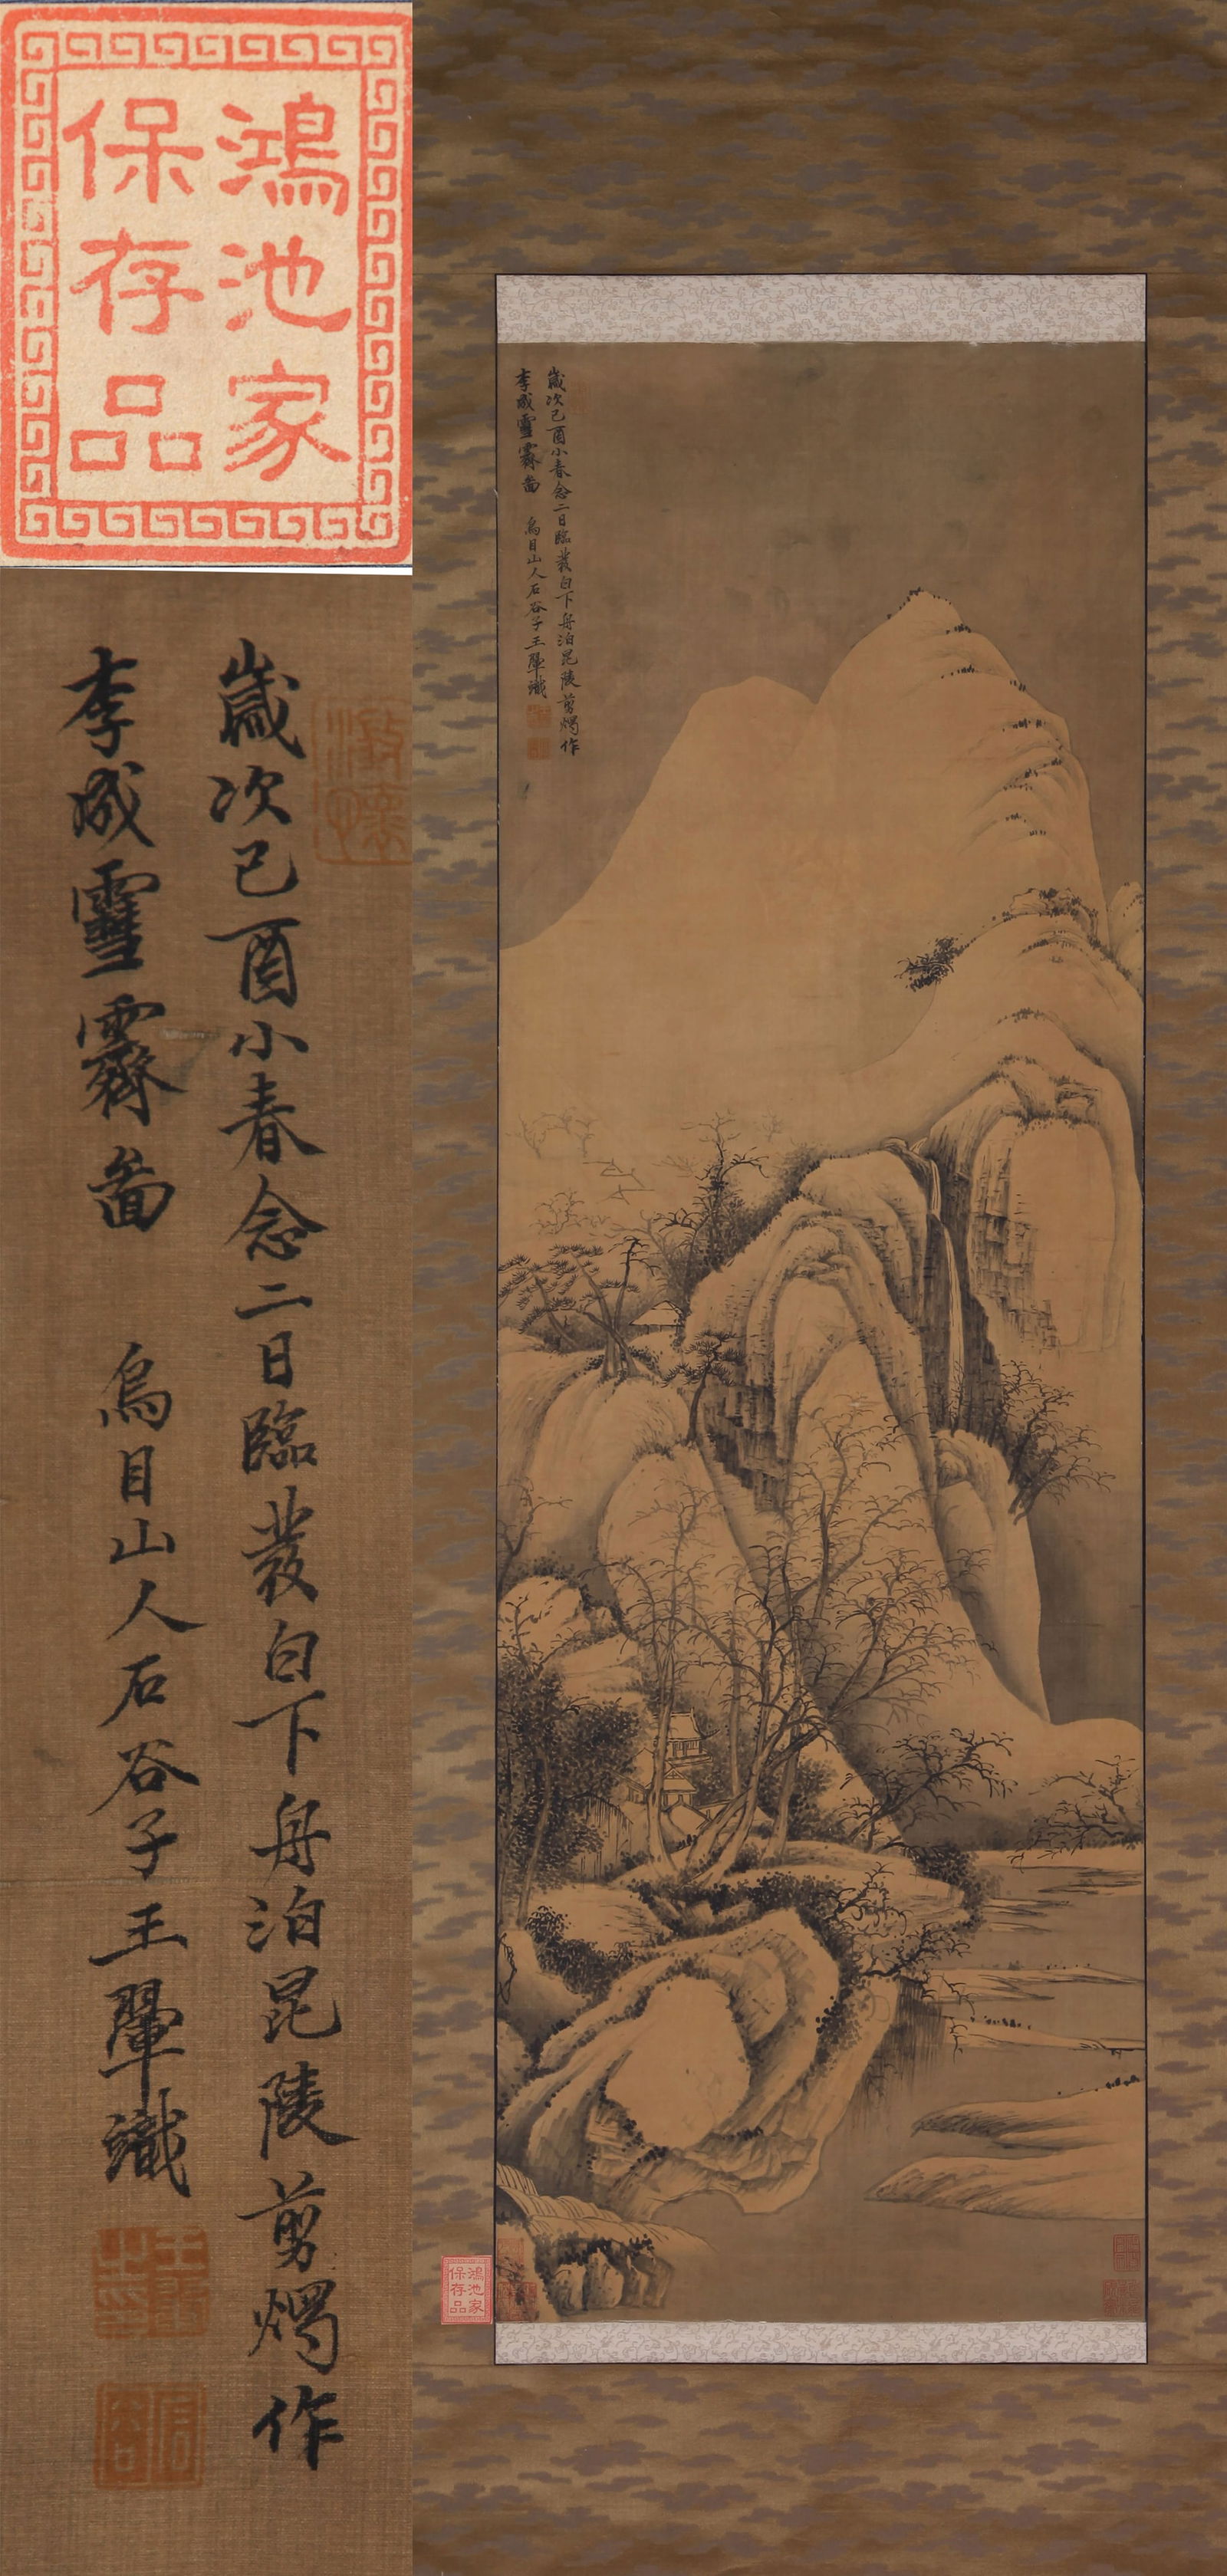 鴻池家
保存品
歲次己酉小春念二日臨叢白下舟泊昆陵剪燭作
李成雪霽啚 烏目山人石谷子王翬識
歲次己酉小春念二日臨叢白下舟泊昆陵剪燭作
李成雪霽啚 烏目山人石谷子王翬識
鴻池家
保存品